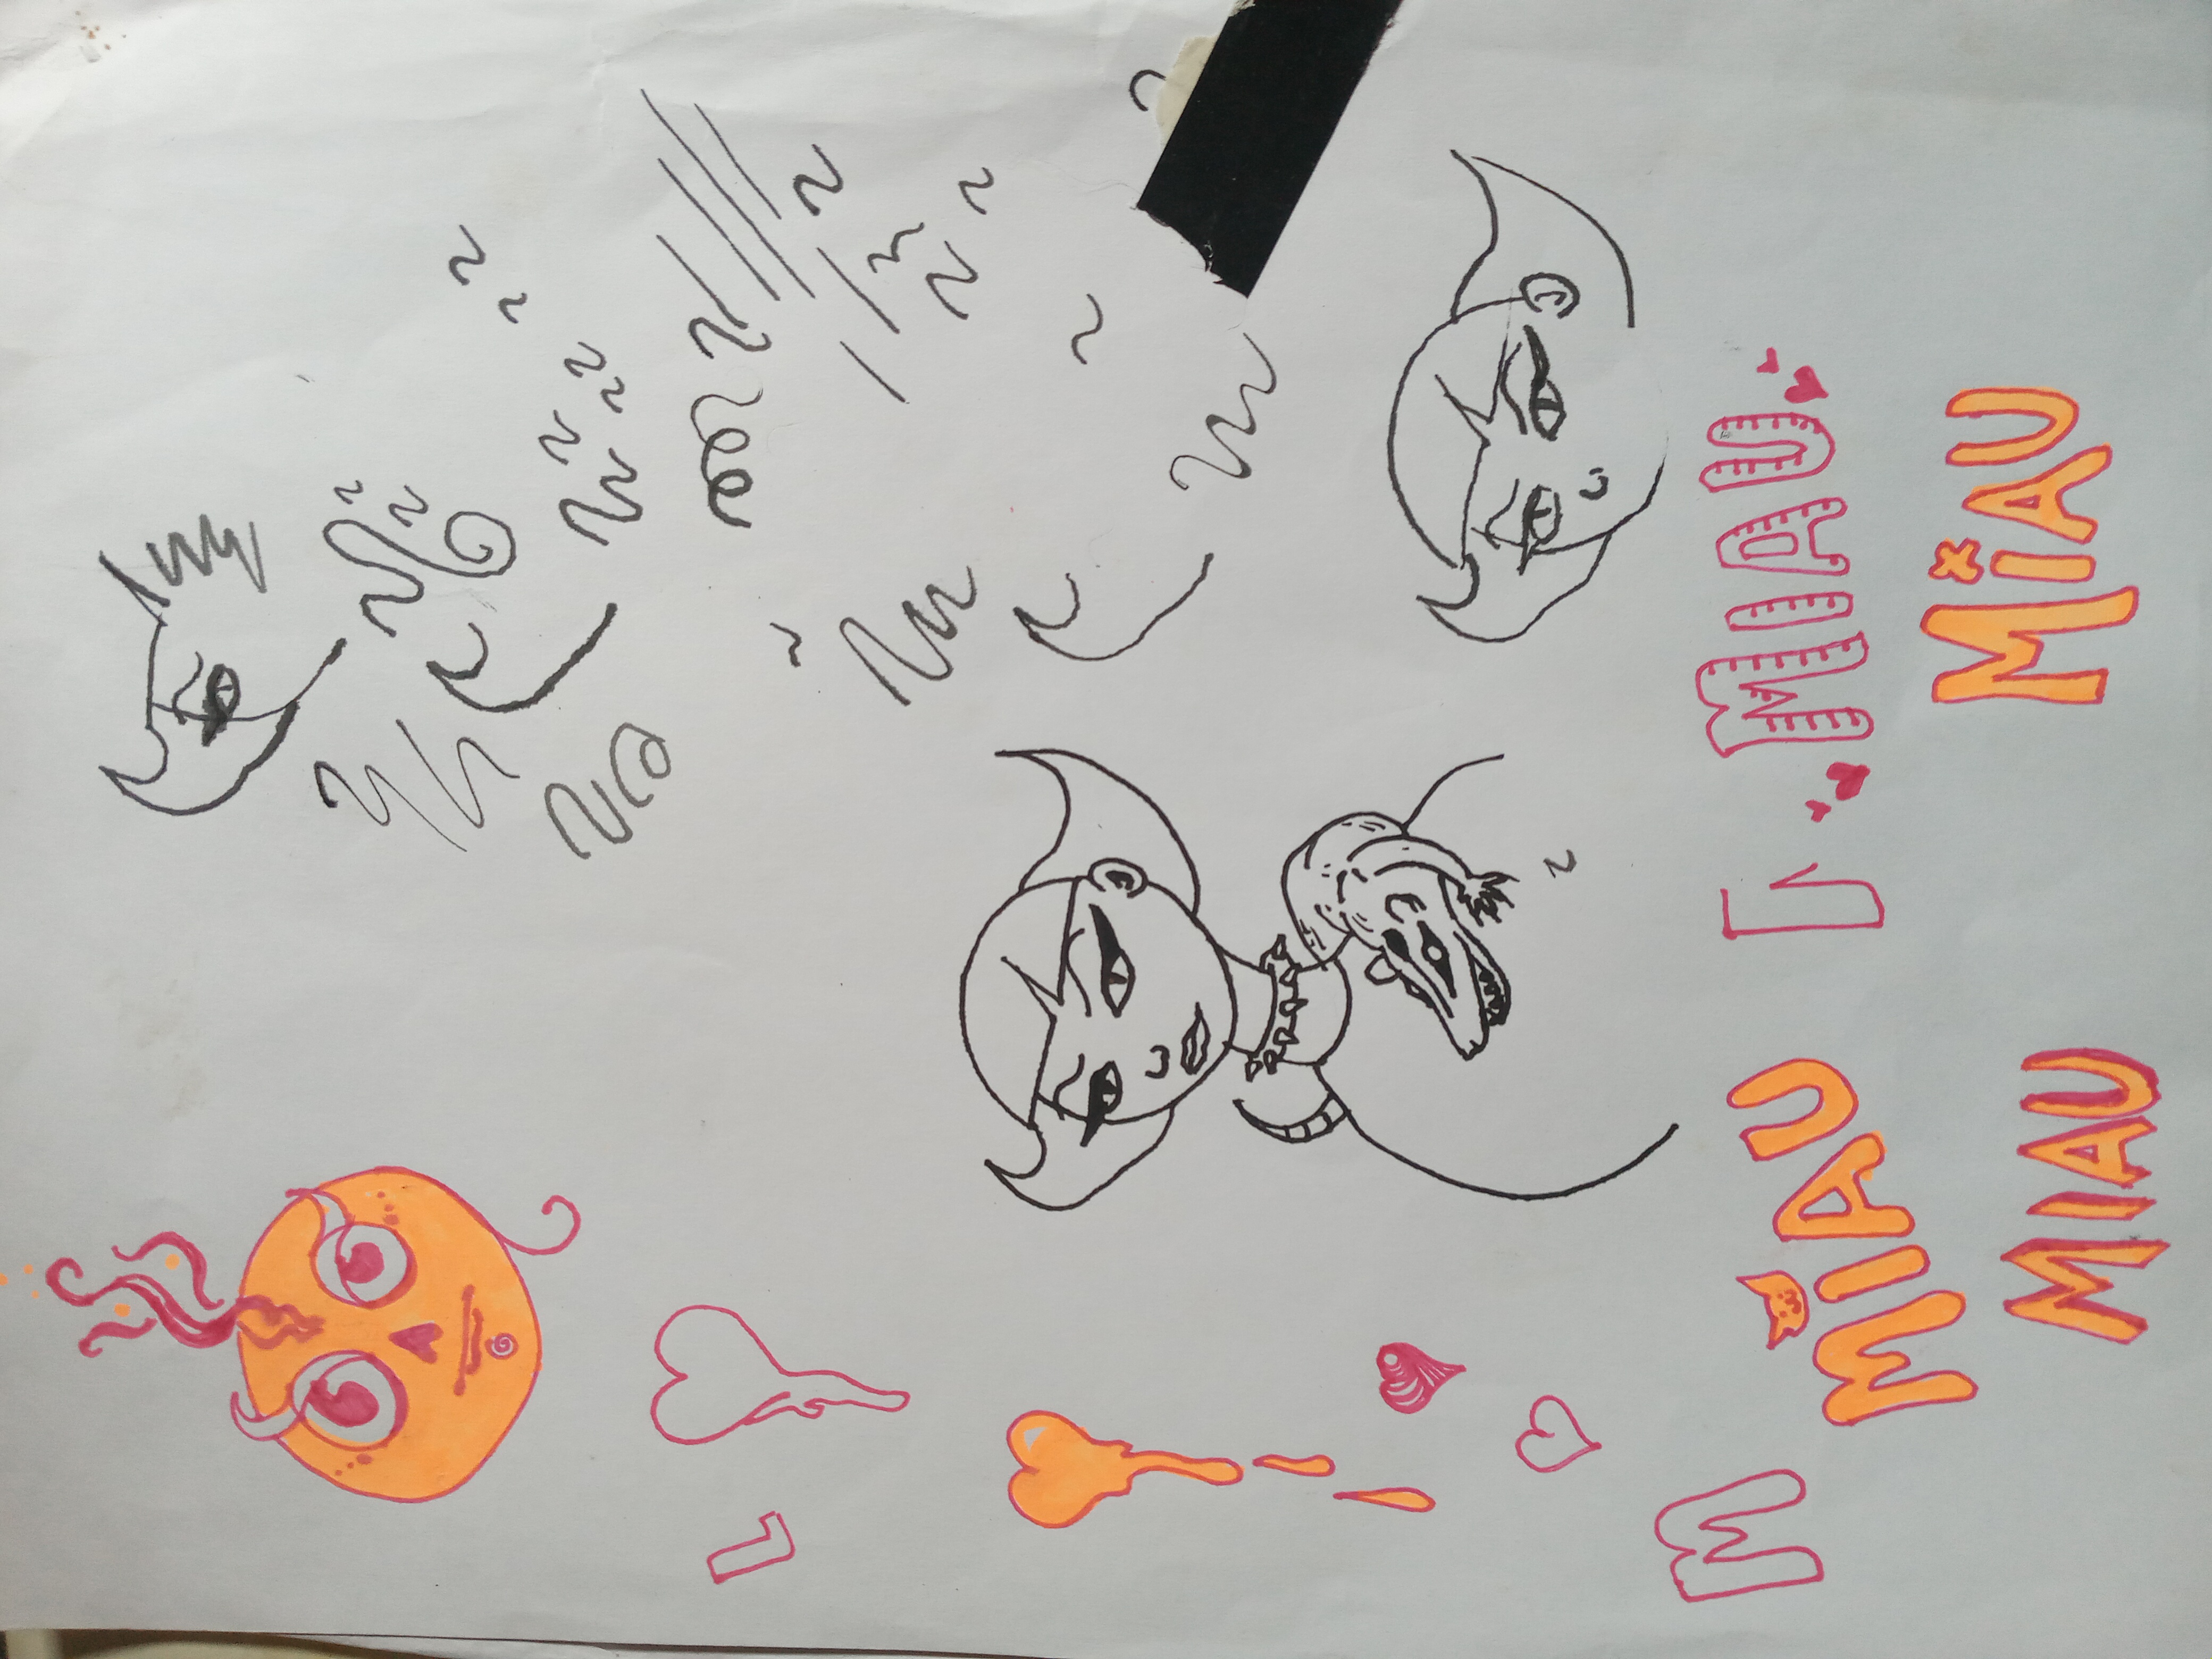 L
M
MIAU
MiAU
MiAU
MIAU